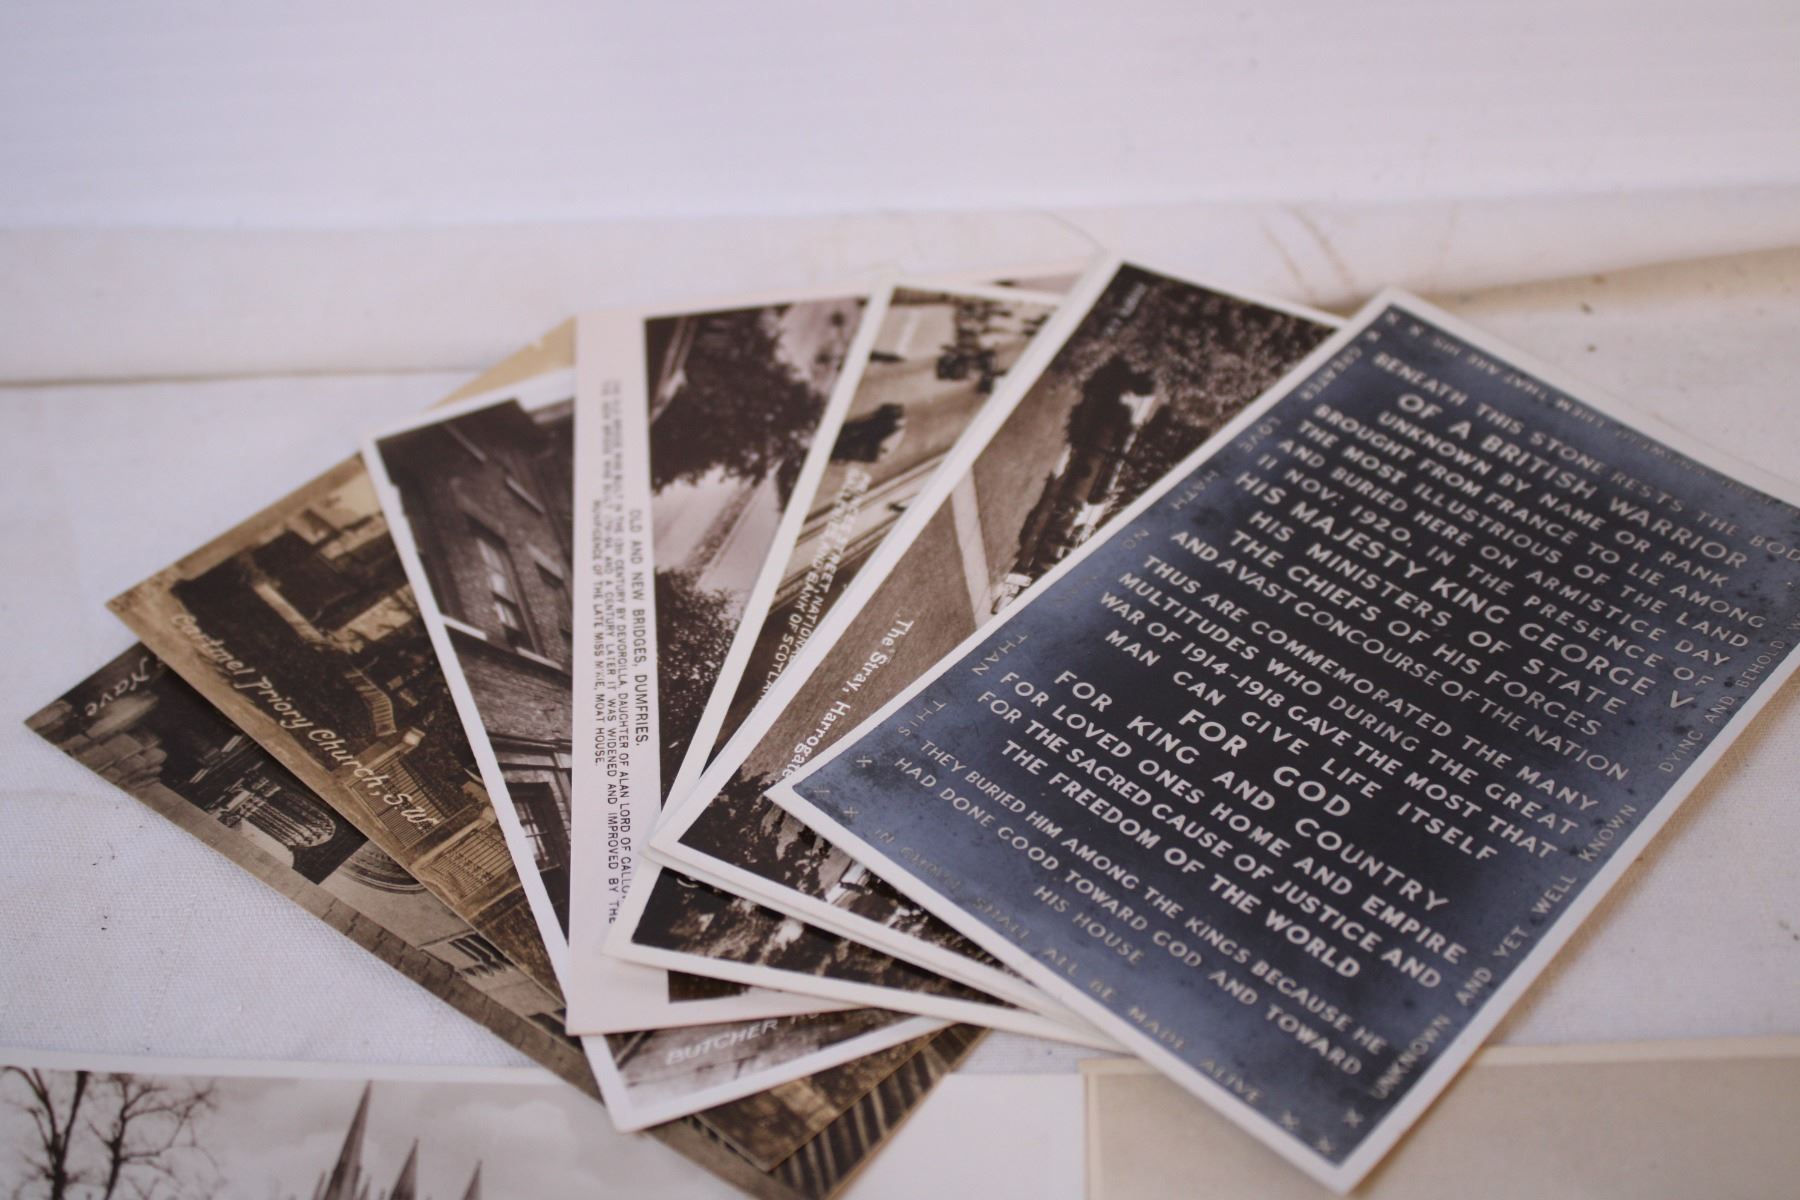 Nave
Cartmel Priory Church, S.W.
BUTCHER
OLD AND NEW BRIDGES, DUMFRIES.
THE OLD BRIDGE WAS BUILT IN THE 13th CENTURY BY DEVORGILLA, DAUGHTER OF ALAN LORD OF
THE NEW BRIDGE WAS BUILT 1794, AND A CENTURY LATER IT WAS WIDENED AND IMPROVED BY THE
MUNIFICENCE OF THE LATE MISS MCKIE, MOAT HOUSE.
STREET
AND BANK OF
The Stray, Harrogate
BENEATH THIS STONE RESTS THE BODY
OF A BRITISH WARRIOR
UNKNOWN BY NAME OR RANK
BROUGHT FROM FRANCE TO LIE AMONG
THE MOST ILLUSTRIOUS OF THE LAND
AND BURIED HERE ON ARMISTICE DAY
11 NOV: 1920, IN THE PRESENCE OF
HIS MAJESTY KING GEORGE V
HIS MINISTERS OF STATE
THE CHIEFS OF HIS FORCES
AND A VAST CONCOURSE OF THE NATION
THUS ARE COMMEMORATED THE MANY
MULTITUDES WHO DURING THE GREAT
WAR OF 1914-1918 GAVE THE MOST THAT
MAN CAN GIVE LIFE ITSELF
FOR GOD
FOR KING AND COUNTRY
FOR LOVED ONES HOME AND EMPIRE
FOR THE SACRED CAUSE OF JUSTICE AND
THE FREEDOM OF THE WORLD
THEY BURIED HIM AMONG THE KINGS BECAUSE HE
HAD DONE GOOD TOWARD GOD AND TOWARD
HIS HOUSE
GREATER LOVE HATH NO MAN THAN THIS
IN CHRIST SHALL ALL BE MADE ALIVE
UNKNOWN AND YET WELL KNOWN
DYING AND BEHOLD
THEM THAT ARE HIS